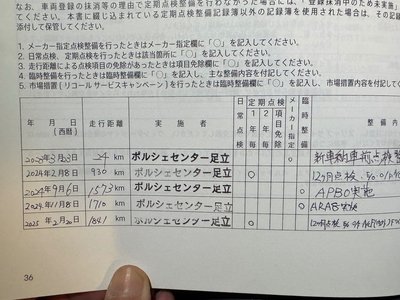 なお、車両登録の抹消等の理由で定期点検整備を行わなかった場合には、「登録抹消中のため未実施」
て、本書に綴じ込まれている定期点検整備記録簿以外の記録簿を使用された場合は、その記録
添付して保管してください。
1. メーカー指定点検整備を行ったときはメーカー指定欄に「○」を記入してください。
2. 日常点検、定期点検を行ったときは該当箇所に「○」を記入してください。
3. 走行距離による点検項目の免除があったときは項目免除欄に「○」を記入してください。
4. 臨時整備を行ったときは臨時整備欄に「○」を記入し、主な整備内容を付記してください。
5. 市場措置(リコールサービスキャンペーン)を行ったときは臨時整備欄に「○」を記入し、市場措置内容を付
年 月 日 (西暦) 走行距離 実施者 日常点検 定期点検 1年毎 2年毎 項目免除 メーカー指定 臨時整備 整備内
2023年3月23日 24 km ポルシェセンター足立 ○ 新車納車前点検整
2024年2月8日 930 km ポルシェセンター足立 ○ 12ヶ月点検
2024年9月6日 1573 km ポルシェセンター足立 ○ APB0実施
2024年11月8日 1710 km ポルシェセンター足立 ○ ARA8実施
2025年2月20日 1841 km ポルシェセンター足立 ○ 12ヶ月点検
36